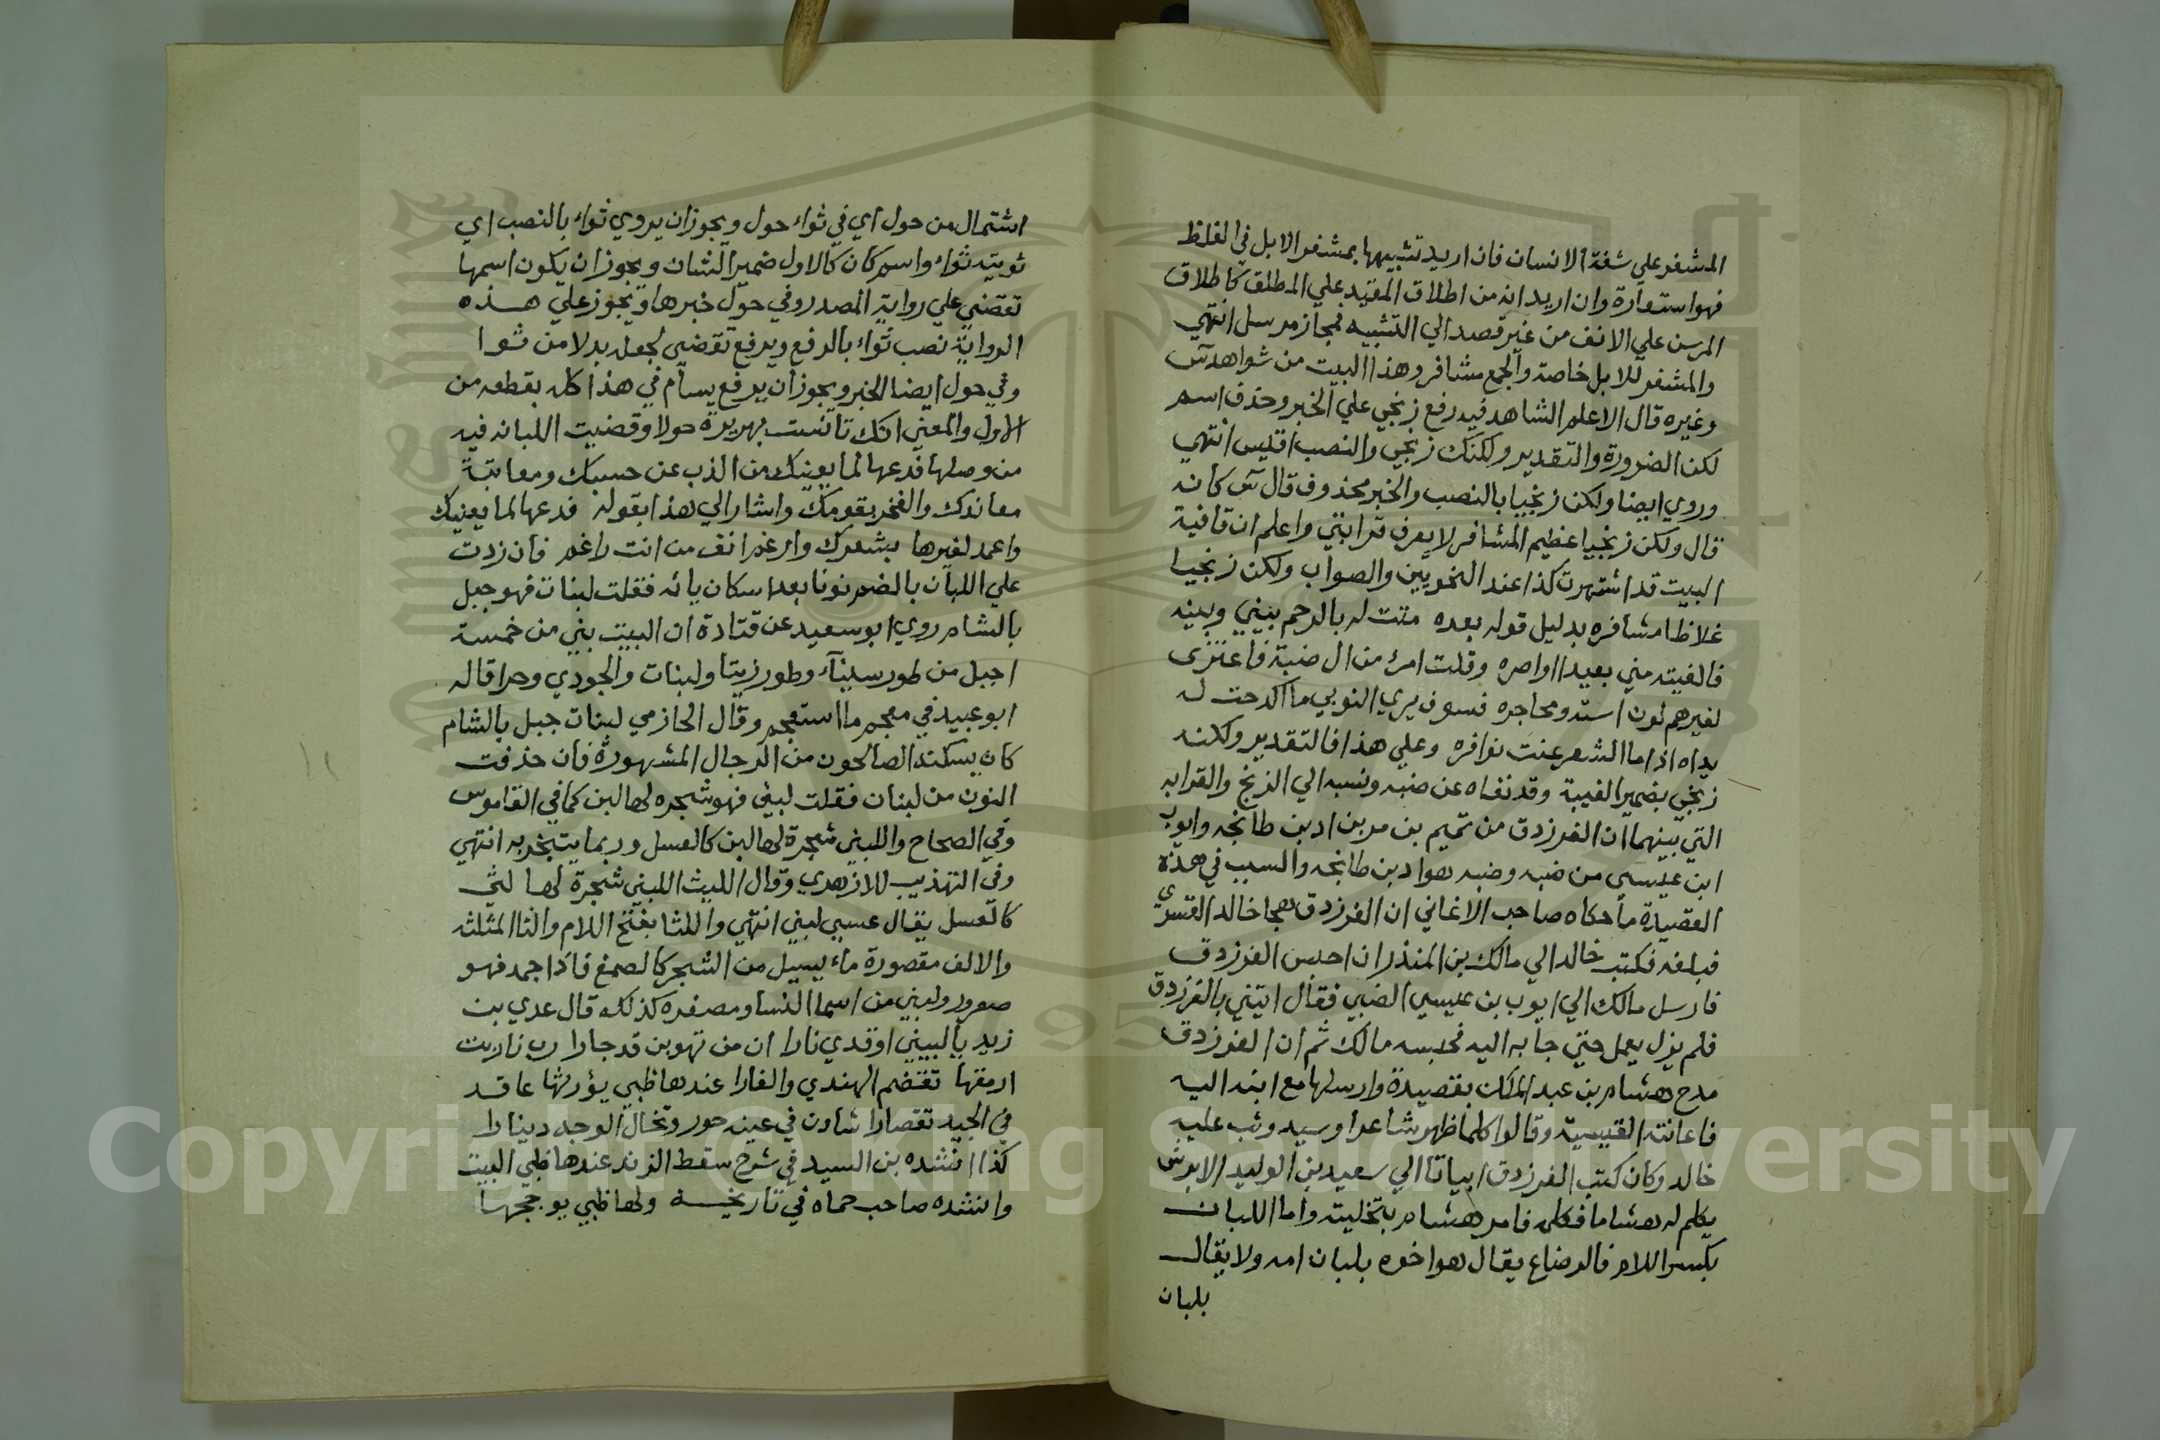 المشفر علي شفة الانسان فان اريد تشبيهها بمشفر الابل في الغلظ
فهو استعارة وان اريد انه من اطلاق المقيد علي المطلق كاطلاق
المرسن علي الانف من غير قصد الي التشبيه فمجاز مرسل انتهي
والمشفر للابل خاصة والجمع مشافر وهذا البيت من شواهد س
وغيره قال الاعلم الشاهد فيه رفع زنجي علي الخبر وحذف اسم
لكن الضرورة والتقدير ولكنك زنجي والنصب اقيس انتهي
وروي ايضا ولكن زنجيا بالنصب والخبر محذوف قال س كانه
قال ولكن زنجيا عظيم المشافر لا يعرف قرابتي واعلم ان قافية
البيت قد اشتهرت كذا عند النحويين والصواب ولكن زنجيا
غلاظا مشافره بدليل قوله بعده متت له بالرحم بيني وبينه
فالفيته مني بعيدا اواصره وقلت امرء من ال ضبة فاعتزى
لغيرهم لون استه ومحاجره فسوف يري النوبي ما اكدحت له
يداه اذا ما الشعر عنت نوافره وعلي هذا فالتقدير ولكنه
زنجي بضمير الغيبة وقد نفاه عن ضبه ونسبه الي الزنج والقرابه
التي بينهما ان الفرزدق من تميم بن مر بن اد بن طابخه وايوب
ابن عيسي من ضبه وضبه هو اد بن طابخه والسبب في هذه
القصيدة ما حكاه صاحب الاغاني ان الفرزدق هجا خالد القسري
فبلغه فكتب خالد الي مالك بن المنذر ان احبس الفرزدق
فارسل مالك الي ايوب بن عيسي الضبي فقال ايتني بالفرزدق
فلم يزل يعمل حتي جا به اليه فحبسه مالك ثم ان الفرزدق
مدح هشام بن عبد الملك بقصيدة وارسلها مع ابنه اليه
فاعانته القيسية وقالوا كلما ظهر شاعر او سيد وثب عليه
خالد وكان كتب الفرزدق ابياتا الي سعيد بن الوليد الابرش
يكلم له هشاما فكلمه فامر هشام بتخليته واما اللبان
بكسر اللام فالرضاع يقال هو اخوه بلبان امه ولا يقال
بلبان
اشتمال من حول اي في ثواء حول ويجوز ان يروي ثواء بالنصب اي
ثويته ثواء واسم كان كالاول ضمير الشان ويجوز ان يكون اسمها
تقضي علي رواية المصدر وفي حول خبرها ويجوز علي هذه
الرواية نصب ثواء بالرفع ويرفع تقضي بجعله بدلا من ثوا
وفي حول ايضا الخبر ويجوز ان يرفع يسام في هذا كله بقطعه من
الاول والمعني انك تانست بهريرة حولا وقضيت اللبانه فيه
من وصلها فدعها لما يعنيك من الذب عن حسبك ومعاتبة
معاندك والفخر بقومك واشار الي هذا بقوله فدعها لما يعنيك
واعمد لغيرها بشعرك وارغم انف من انت راغم فان زدت
علي اللبان بالضم نونا بعد اسكان بائه فقلت لبنان فهو جبل
بالشام روي ابو سعيد عن قتادة ان البيت بني من خمسة
اجبل من طور سيناء وطور زيتا ولبنان والجودي وحرا قاله
ابو عبيد في معجم ما استعجم وقال الحازمي لبنان جبل بالشام
كان يسكنه الصالحون من الرجال المشهورة فان حذفت
النون من لبنان فقلت لبني فهو شجره لها لبن كما في القاموس
وفي الصحاح واللبني شجرة لها لبن كالعسل وربما يتبخر به انتهي
وفي التهذيب للازهدي وقال الليث اللبني شجرة لها لثي
كالعسل يقال عسبي لبني انتهي واللثا بفتح اللام والثا المثلثه
والالف مقصورة ماء يسيل من الشجر كالصمغ فاذا جمد فهو
صعرور ولبني من اسما النسا ومصغره كذلك قال عدي بن
زيد يا لبيني اوقدي نارا ان من تهوين قد جارا رب نار بت
ارمقها تقضم الهندي والغارا عندها ظبي يؤرثها عاقد
في الجيد تقصارا شادن في عينه حور وتخال الوجه دينارا
كذا انشده بن السيد في شرح سقط الزند عندها ظبي البيت
وانشده صاحب حماه في تاريخه ولها ظبي يوججها